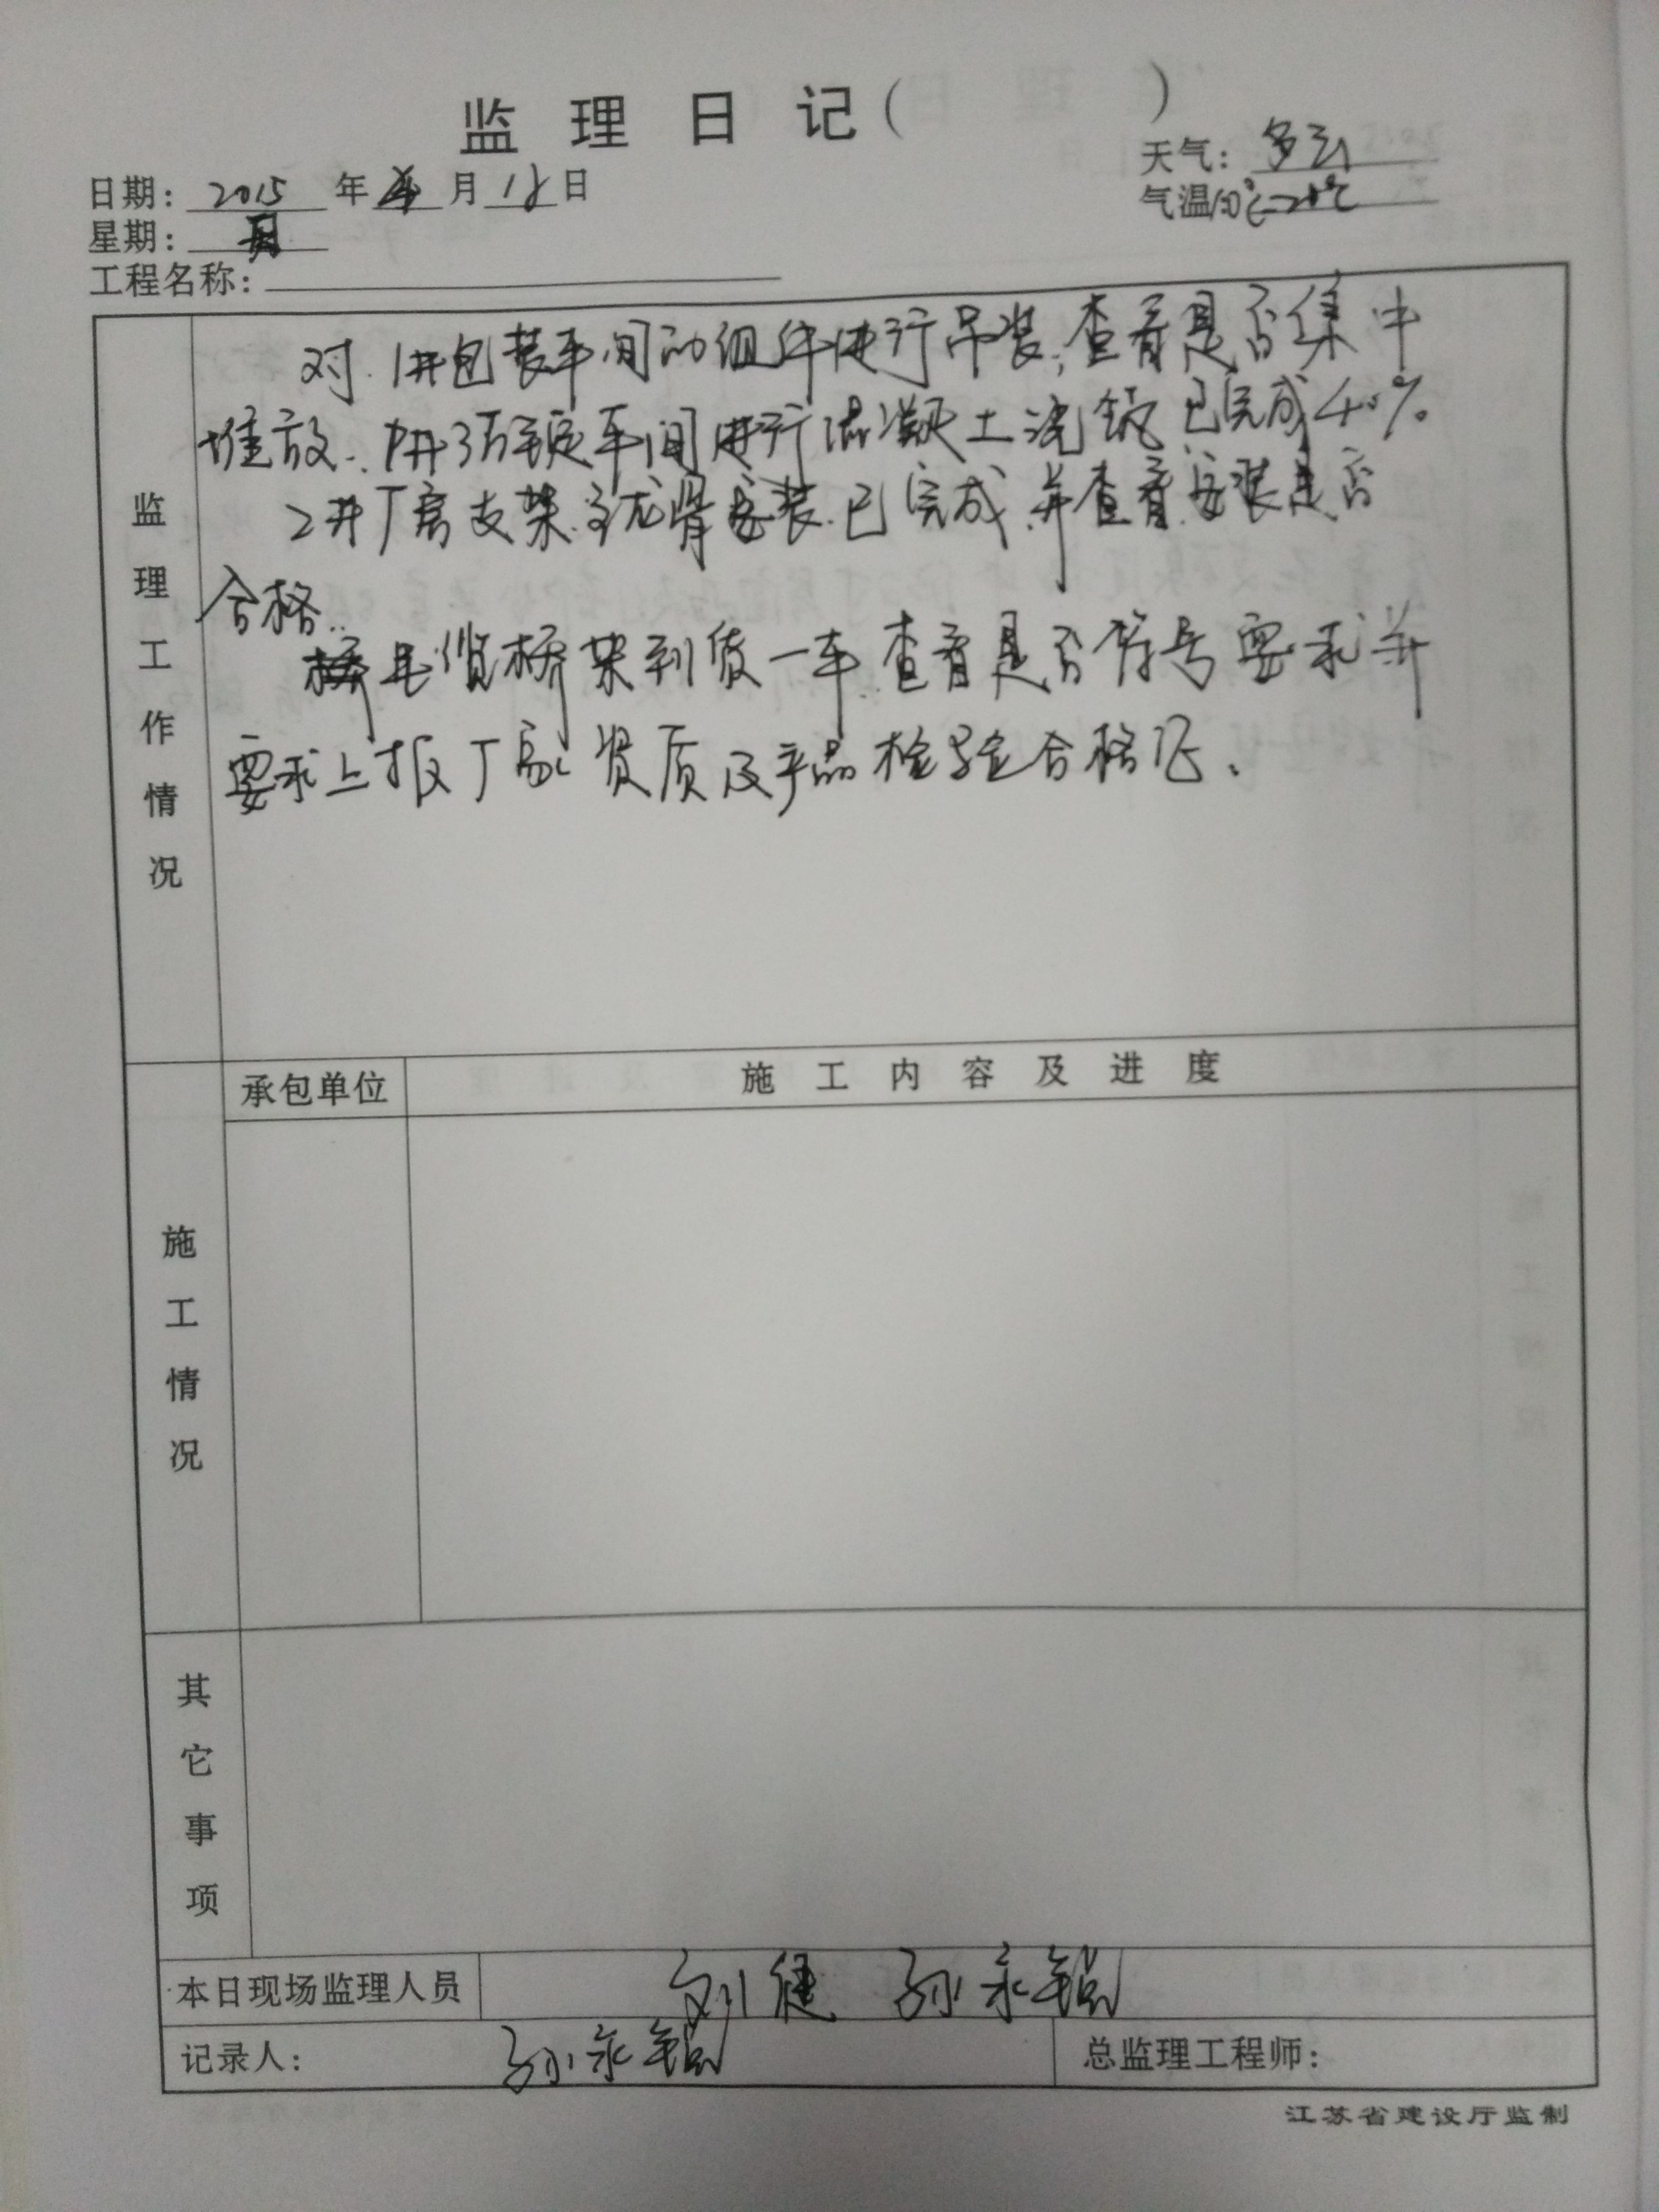 监理日记（ ）
日期：2015年 月18日
天气：多云
星期：
气温：10℃-20℃
工程名称：
监理工作情况
对1#包装车间的组件进行吊装，查看是否集中
堆放. 1#3万锭车间进行混凝土浇筑已完成40%
2#厂房支架主龙骨安装已完成并查看安装是否
合格.
电缆桥架到货一车查看是否符号要求并
要求上报厂家资质及产品检验合格证.
施工情况
承包单位
施工内容及进度
其它事项
本日现场监理人员 刘健 孙永
记录人：孙永
总监理工程师：
江苏省建设厅监制